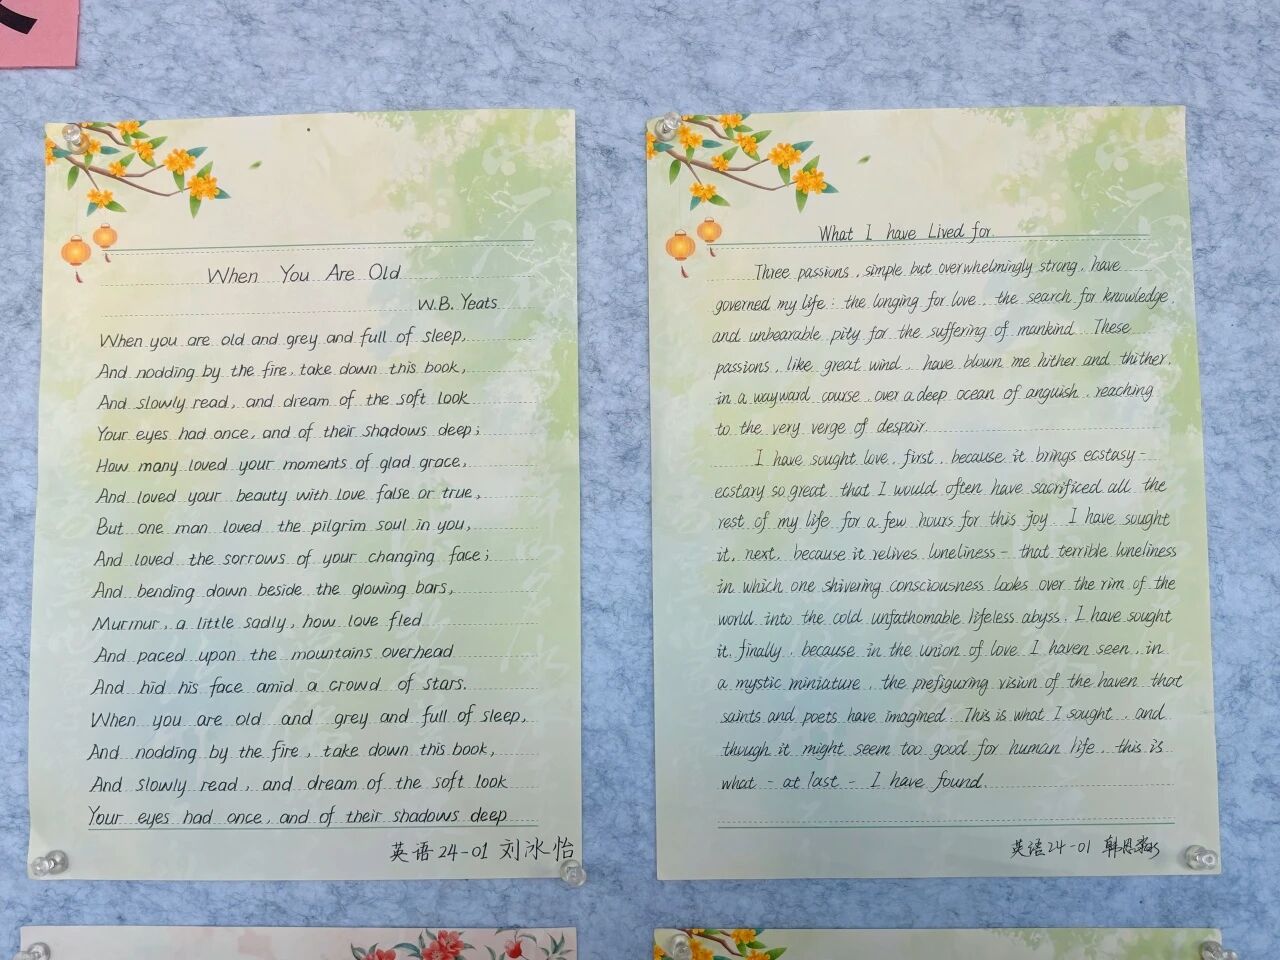 When You Are Old
W.B. Yeats
When you are old and grey and full of sleep,
And nodding by the fire, take down this book,
And slowly read, and dream of the soft look
Your eyes had once, and of their shadows deep;
How many loved your moments of glad grace,
And loved your beauty with love false or true,
But one man loved the pilgrim soul in you,
And loved the sorrows of your changing face;
And bending down beside the glowing bars,
Murmur, a little sadly, how love fled
And paced upon the mountains overhead
And hid his face amid a crowd of stars.
When you are old and grey and full of sleep,
And nodding by the fire, take down this book,
And slowly read, and dream of the soft look
Your eyes had once, and of their shadows deep
英语24-01 刘冰怡
What I have Lived for
Three passions, simple but overwhelmingly strong, have
governed my life: the longing for love, the search for knowledge,
and unbearable pity for the suffering of mankind. These
passions, like great wind, have blown me hither and thither,
in a wayward course, over a deep ocean of anguish, reaching
to the very verge of despair.
I have sought love, first, because it brings ecstasy-
ecstary so great that I would often have sacrificed all the
rest of my life for a few hours for this joy. I have sought
it, next, because it relives loneliness - that terrible loneliness
in which one shivering consciousness looks over the rim of the
world into the cold unfathomable lifeless abyss. I have sought
it, finally, because in the union of love I haven seen, in
a mystic miniature, the prefiguring vision of the haven that
saints and poets have imagined. This is what I sought, and
though it might seem too good for human life, this is
what - at last - I have found.
英语24-01 韩恩